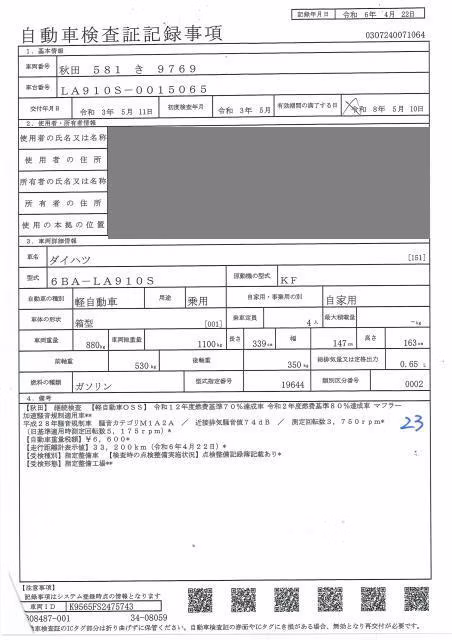 記録年月日 令和 6年 4月 22日
自動車検査証記録事項
0307240071064
1. 基本情報
車両番号 秋田 581 き 9769
車台番号 LA910S-0015065
交付年月日 令和 3年 5月 11日 初度検査年月 令和 3年 5月 有効期間の満了する日 令和 8年 5月 10日
2. 使用者・所有者情報
使用者の氏名又は名称
使用者の住所
所有者の氏名又は名称
所有者の住所
使用の本拠の位置
3. 車両詳細情報
車名 ダイハツ [151]
型式 6BA-LA910S 原動機の型式 KF
自動車の種別 軽自動車 用途 乗用 自家用・事業用の別 自家用
車体の形状 箱型 [001] 乗車定員 4人 最大積載量 -kg
車両重量 880kg 車両総重量 1100kg 長さ 339cm 幅 147cm 高さ 163cm
前軸重 530kg 後軸重 350kg 総排気量又は定格出力 0.65 L
燃料の種類 ガソリン 型式指定番号 19644 類別区分番号 0002
4. 備考
【秋田】 継続検査 【軽自動車OSS】 令和12年度燃費基準70%達成車 令和2年度燃費基準80%達成車 マフラー
加速騒音規制適用車**
平成28年騒音規制車 騒音カテゴリM1A2A / 近接排気騒音値74dB / 測定回転数3,750rpm*
(旧基準適用時測定回転数5,175rpm)*
[自動車重量税額] ¥6,600*
[走行距離計表示値] 33,200km (令和6年4月22日)*
[受検種別] 指定整備車 [検査時の点検整備実施状況] 点検整備記録簿記載あり*
[受検形態] 指定整備工場**
23
【注意事項】
記録事項はシステム登録時点の情報となります
車両ID K9565FS2475743
08487-001 34-08059
動車検査証のICタグ部分は折り曲げずに保管ください。自動車検査証の券面やICタグに き損がある場合、無効となり再交付が必要です。